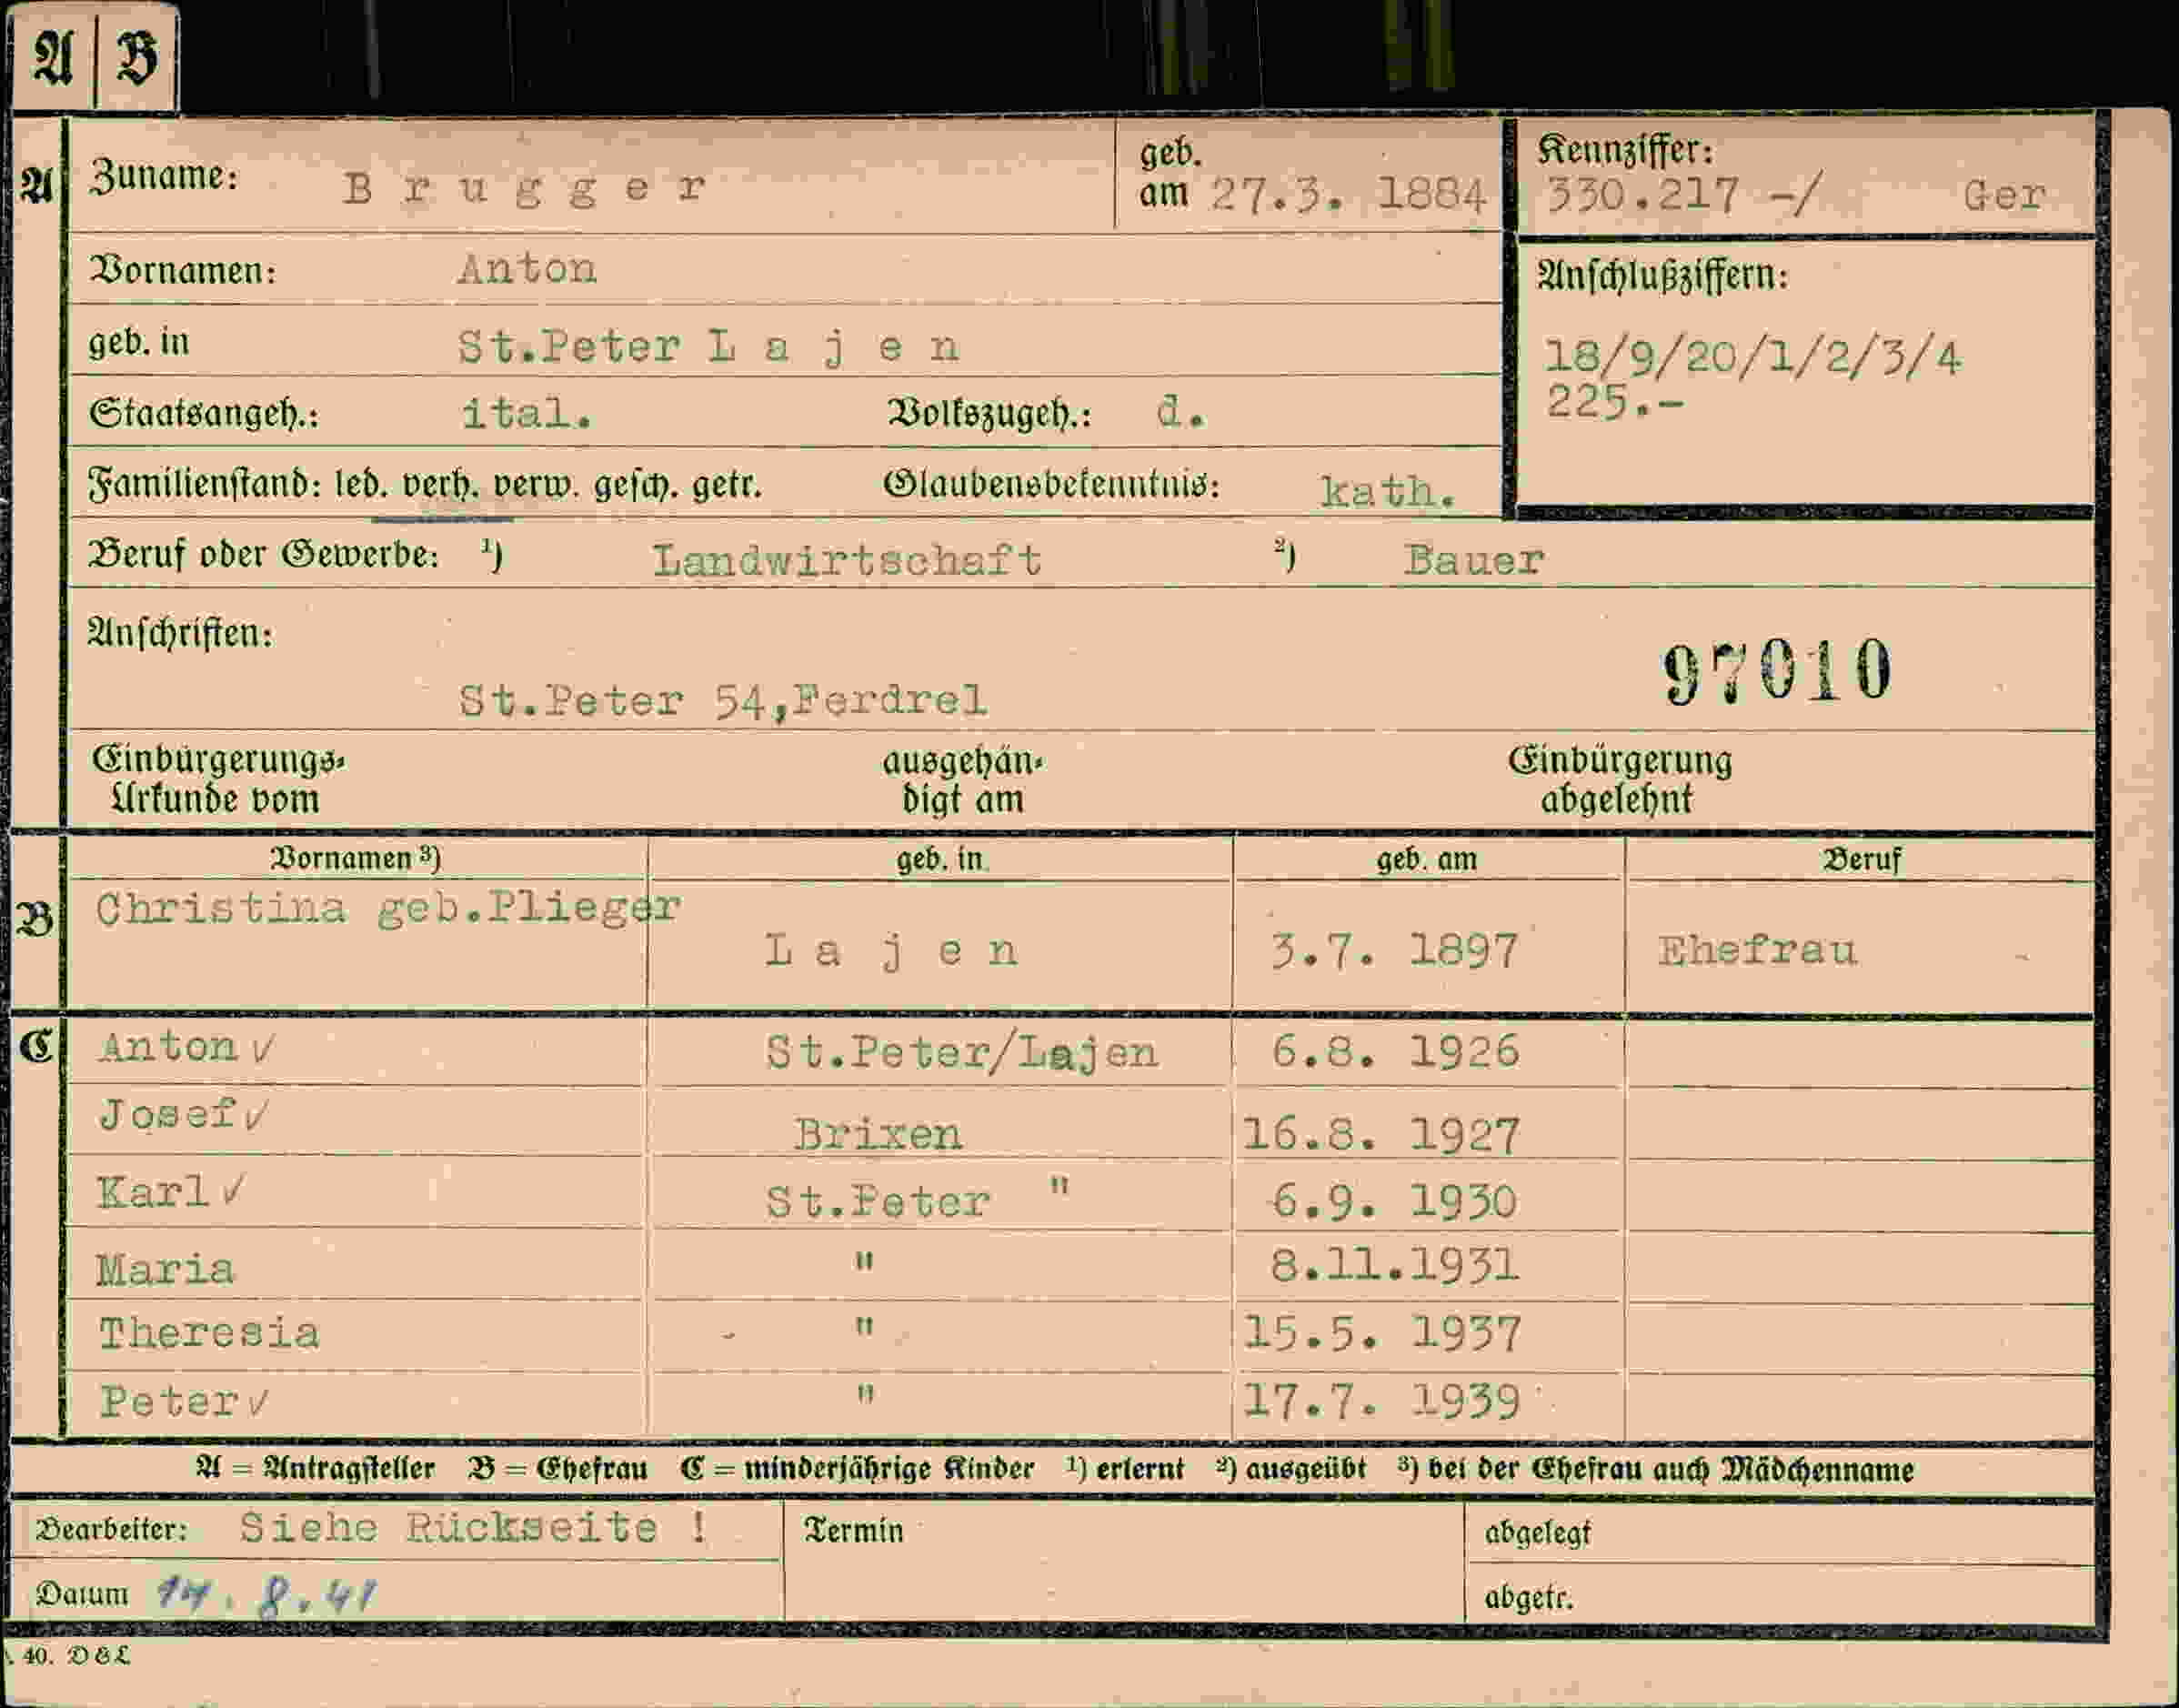 A B
A Zuname: Brugger geb. am 27.3. 1884 Kennziffer: 330.217 -/ Ger
Vornamen: Anton
Anschlußziffern:
geb. in St.Peter Lajen
18/9/20/1/2/3/4
225.-
Staatsangeh.: ital. Volkszugeh.: d.
Familienstand: led. verh. verw. gesch. getr. Glaubensbekenntnis: kath.
Beruf oder Gewerbe: ¹) Landwirtschaft ²) Bauer
Anschriften:
97010
St.Peter 54,Ferdrel
Einbürgerungs- ausgehän- Einbürgerung
Urkunde vom digt am abgelehnt
Vornamen ³) geb. in geb. am Beruf
B Christina geb.Plieger
Lajen 3.7. 1897 Ehefrau
C Anton ✓ St.Peter/Lajen 6.8. 1926
Josef ✓ Brixen 16.8. 1927
Karl ✓ St.Peter " 6.9. 1930
Maria " 8.11.1931
Theresia " 15.5. 1937
Peter ✓ " 17.7. 1939
A = Antragsteller B = Ehefrau C = minderjährige Kinder ¹) erlernt ²) ausgeübt ³) bei der Ehefrau auch Mädchenname
Bearbeiter: Siehe Rückseite ! Termin abgelegt
Datum 14.8.41 abgetr.
40. D&L